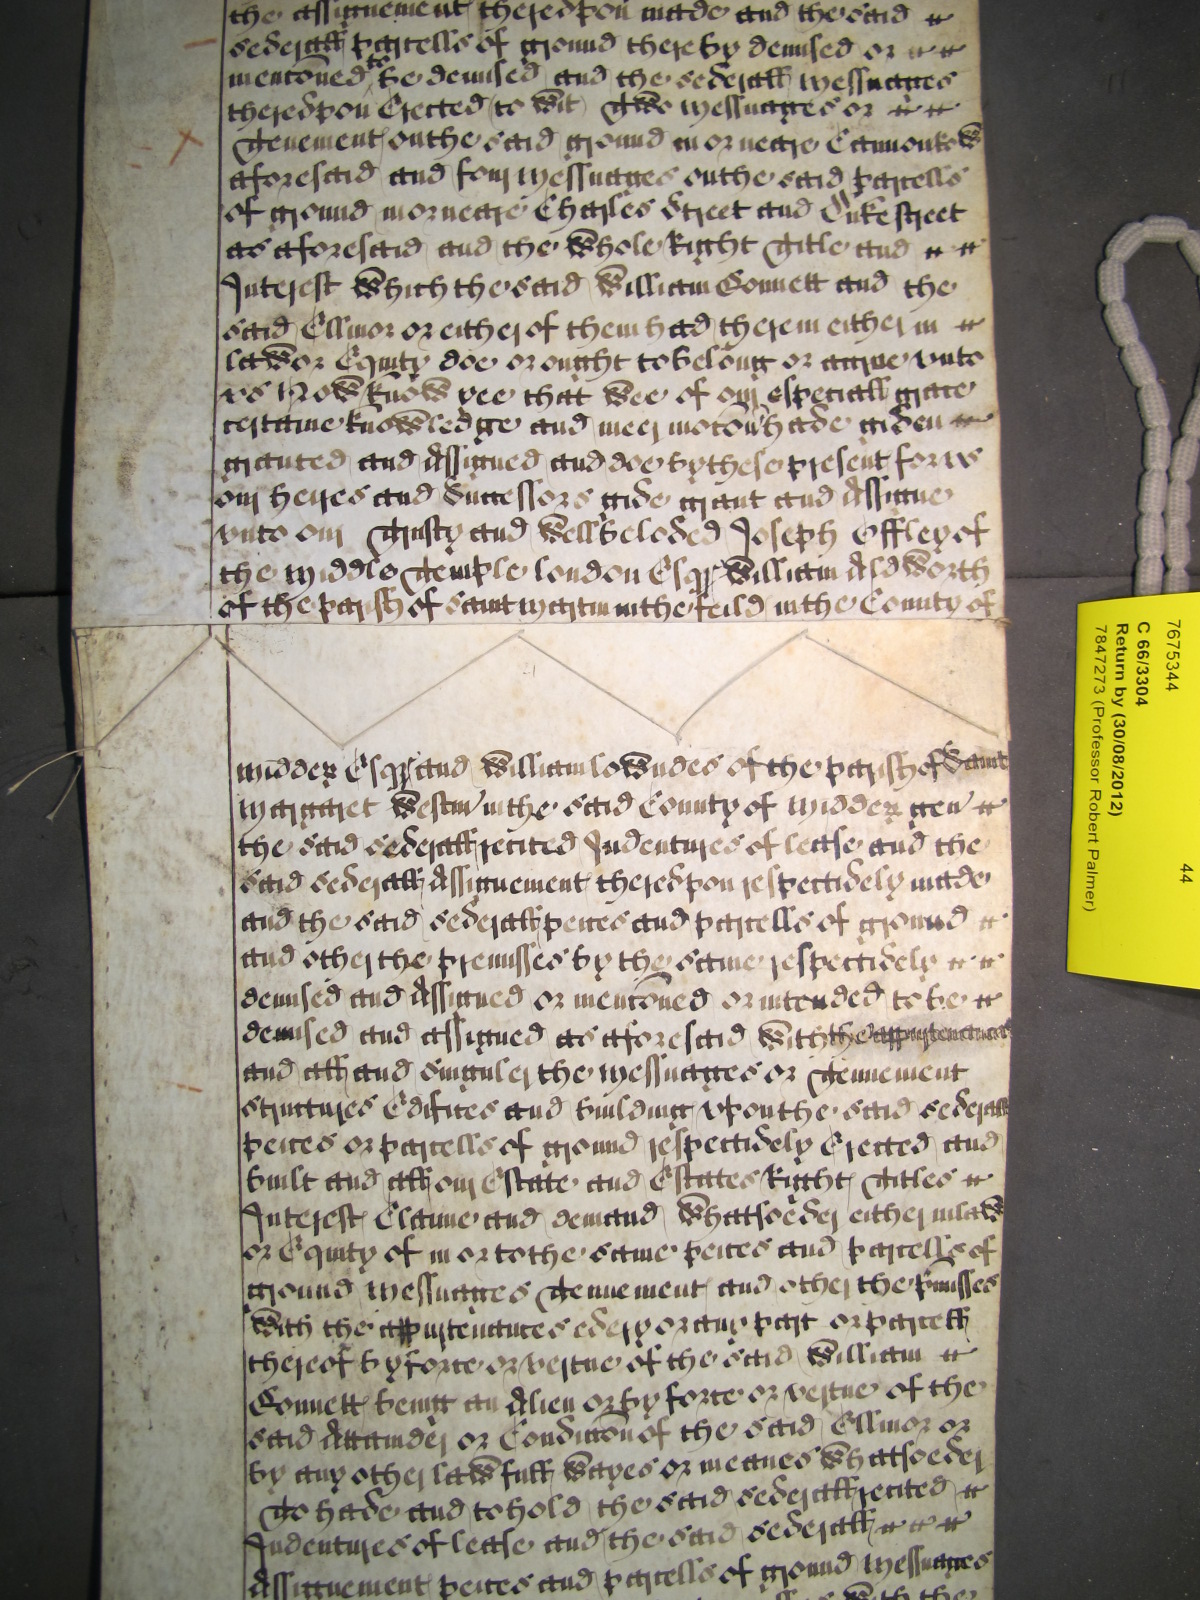 the assignement thereupon made and the said
severall parcells of ground thereby demised or
mentoned to be demised and the severall messuages
thereupon Erected to wit Two messuages or
Tenement on the said ground in or neare Cannonrow
aforesaid and four messuages on the said parcells
of ground in or neare Charles Street and Duke street
as aforesaid and the whole Right Title and
Interest which the said William Gonnett and the
said Ellinor or either of them had therein either in
law or Equity doe or ought to belong or accrue unto
us Now know yee that wee of our especiall grace
certaine knowledge and meer moton have given
granted and Assigned and doe by these present for us
our heires and Successors give grant and Assigne
unto our Trusty and wellbeloved Joseph Offley of
the Middle Temple london Esqr William Aldworth
of the parish of saint Martin in the feild in the County of
Middex Esqr and William lowndes of the parish of Saint
Margaret Westmr in the said County of Middex gen
the said severall recited Indentures of lease and the
said severall Assignement thereupon respectively made
and the said severall peices and parcells of ground
and other the premisses by the same respectively
demised and Assigned or mentoned or intended to be
demised and assigned as aforesaid with the appurtenances
and all and singuler the messuages or Tennement
structures Edifices and building upon the said severall
peices or parcells of ground respectively Erected and
built and all our Estate and Estates Right Titles
Interest Claime and demand whatsoever either in law
or Equity of in or to the same peices and parcells of
ground messuages Tennement and other the pmisses
with the appurtenances every or any part or parcell
thereof by force or vertue of the said William
Gonnett being an Alien or by force or vertue of the
said Attainder or Conditon of the said Ellinor or
by any other lawfull wayes or meanes whatsoever
To have and to hold the said severall recited
Indentures of lease and the said severall
Assignement peices and parcells of ground messuages
with the
7675344
44
C 66/3304
Return by (30/08/2012)
7847273 (Professor Robert Palmer)